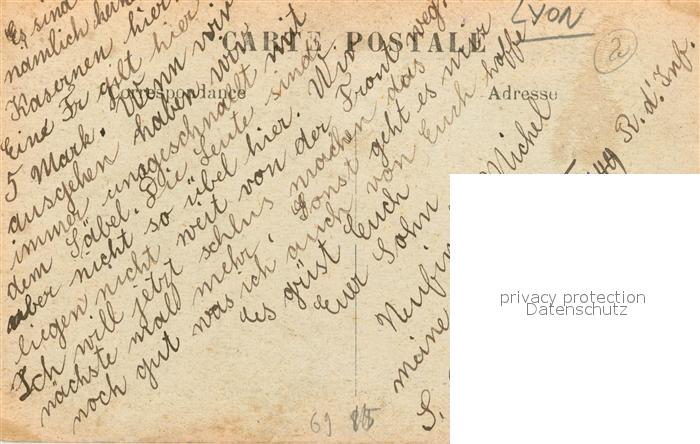 CARTE POSTALE
LYON
2
Correspondance
Adresse
Es sind
nämlich keine
Kasernen hier.
Eine Fr gilt hier
5 Mark. Wenn wir
ausgehen haben wir
immer umgeschnallt mit
dem Säbel. Die Leute sind
aber nicht so übel hier. Wir
liegen nicht weit von der Front weg.
Ich will jetzt schlus machen das
nächste mall mehr. Sonst geht es mir
noch gut was ich auch von Euch hoffe
des güst Euch
Euer Sohn Michel
meine
149 R.d.Inf.
S.
69
privacy protection
Datenschutz